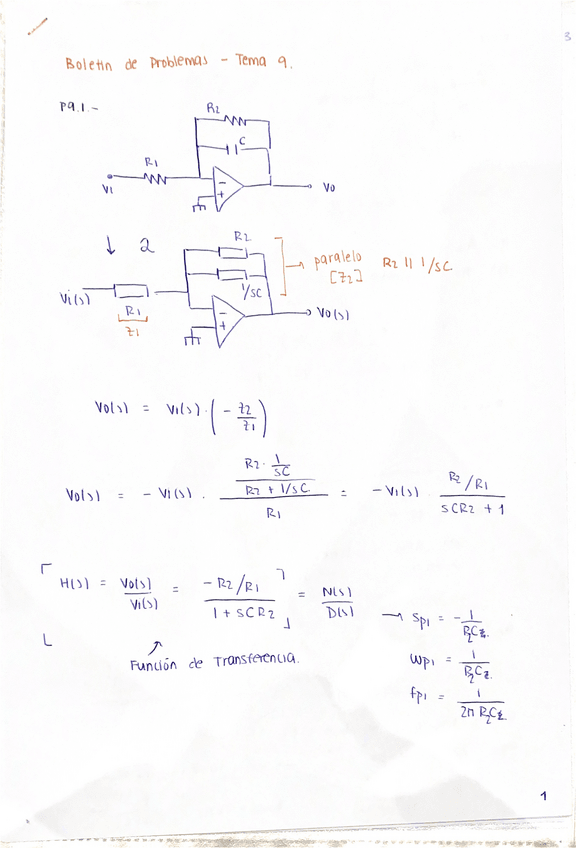 3
Boletín de Problemas - Tema 9.
P9.1.-
R2
C
R1
Vi
- +
Vo
↓ 2
R2
1/SC
paralelo
[Z2]
R2 || 1/SC
Vi(s)
R1
Z1
- +
Vo(s)
Vo(s) = Vi(s) · (- Z2/Z1)
Vo(s) = - Vi(s) · ((R2 · 1/SC)/(R2 + 1/SC))/R1 = - Vi(s) · (R2/R1)/(SCR2 + 1)
H(s) = Vo(s)/Vi(s) = (-R2/R1)/(1 + SCR2) = N(s)/D(s)
Función de Transferencia.
→ Sp1 = - 1/(R2C)
Wp1 = 1/(R2C2)
fp1 = 1/(2π R2C)
1